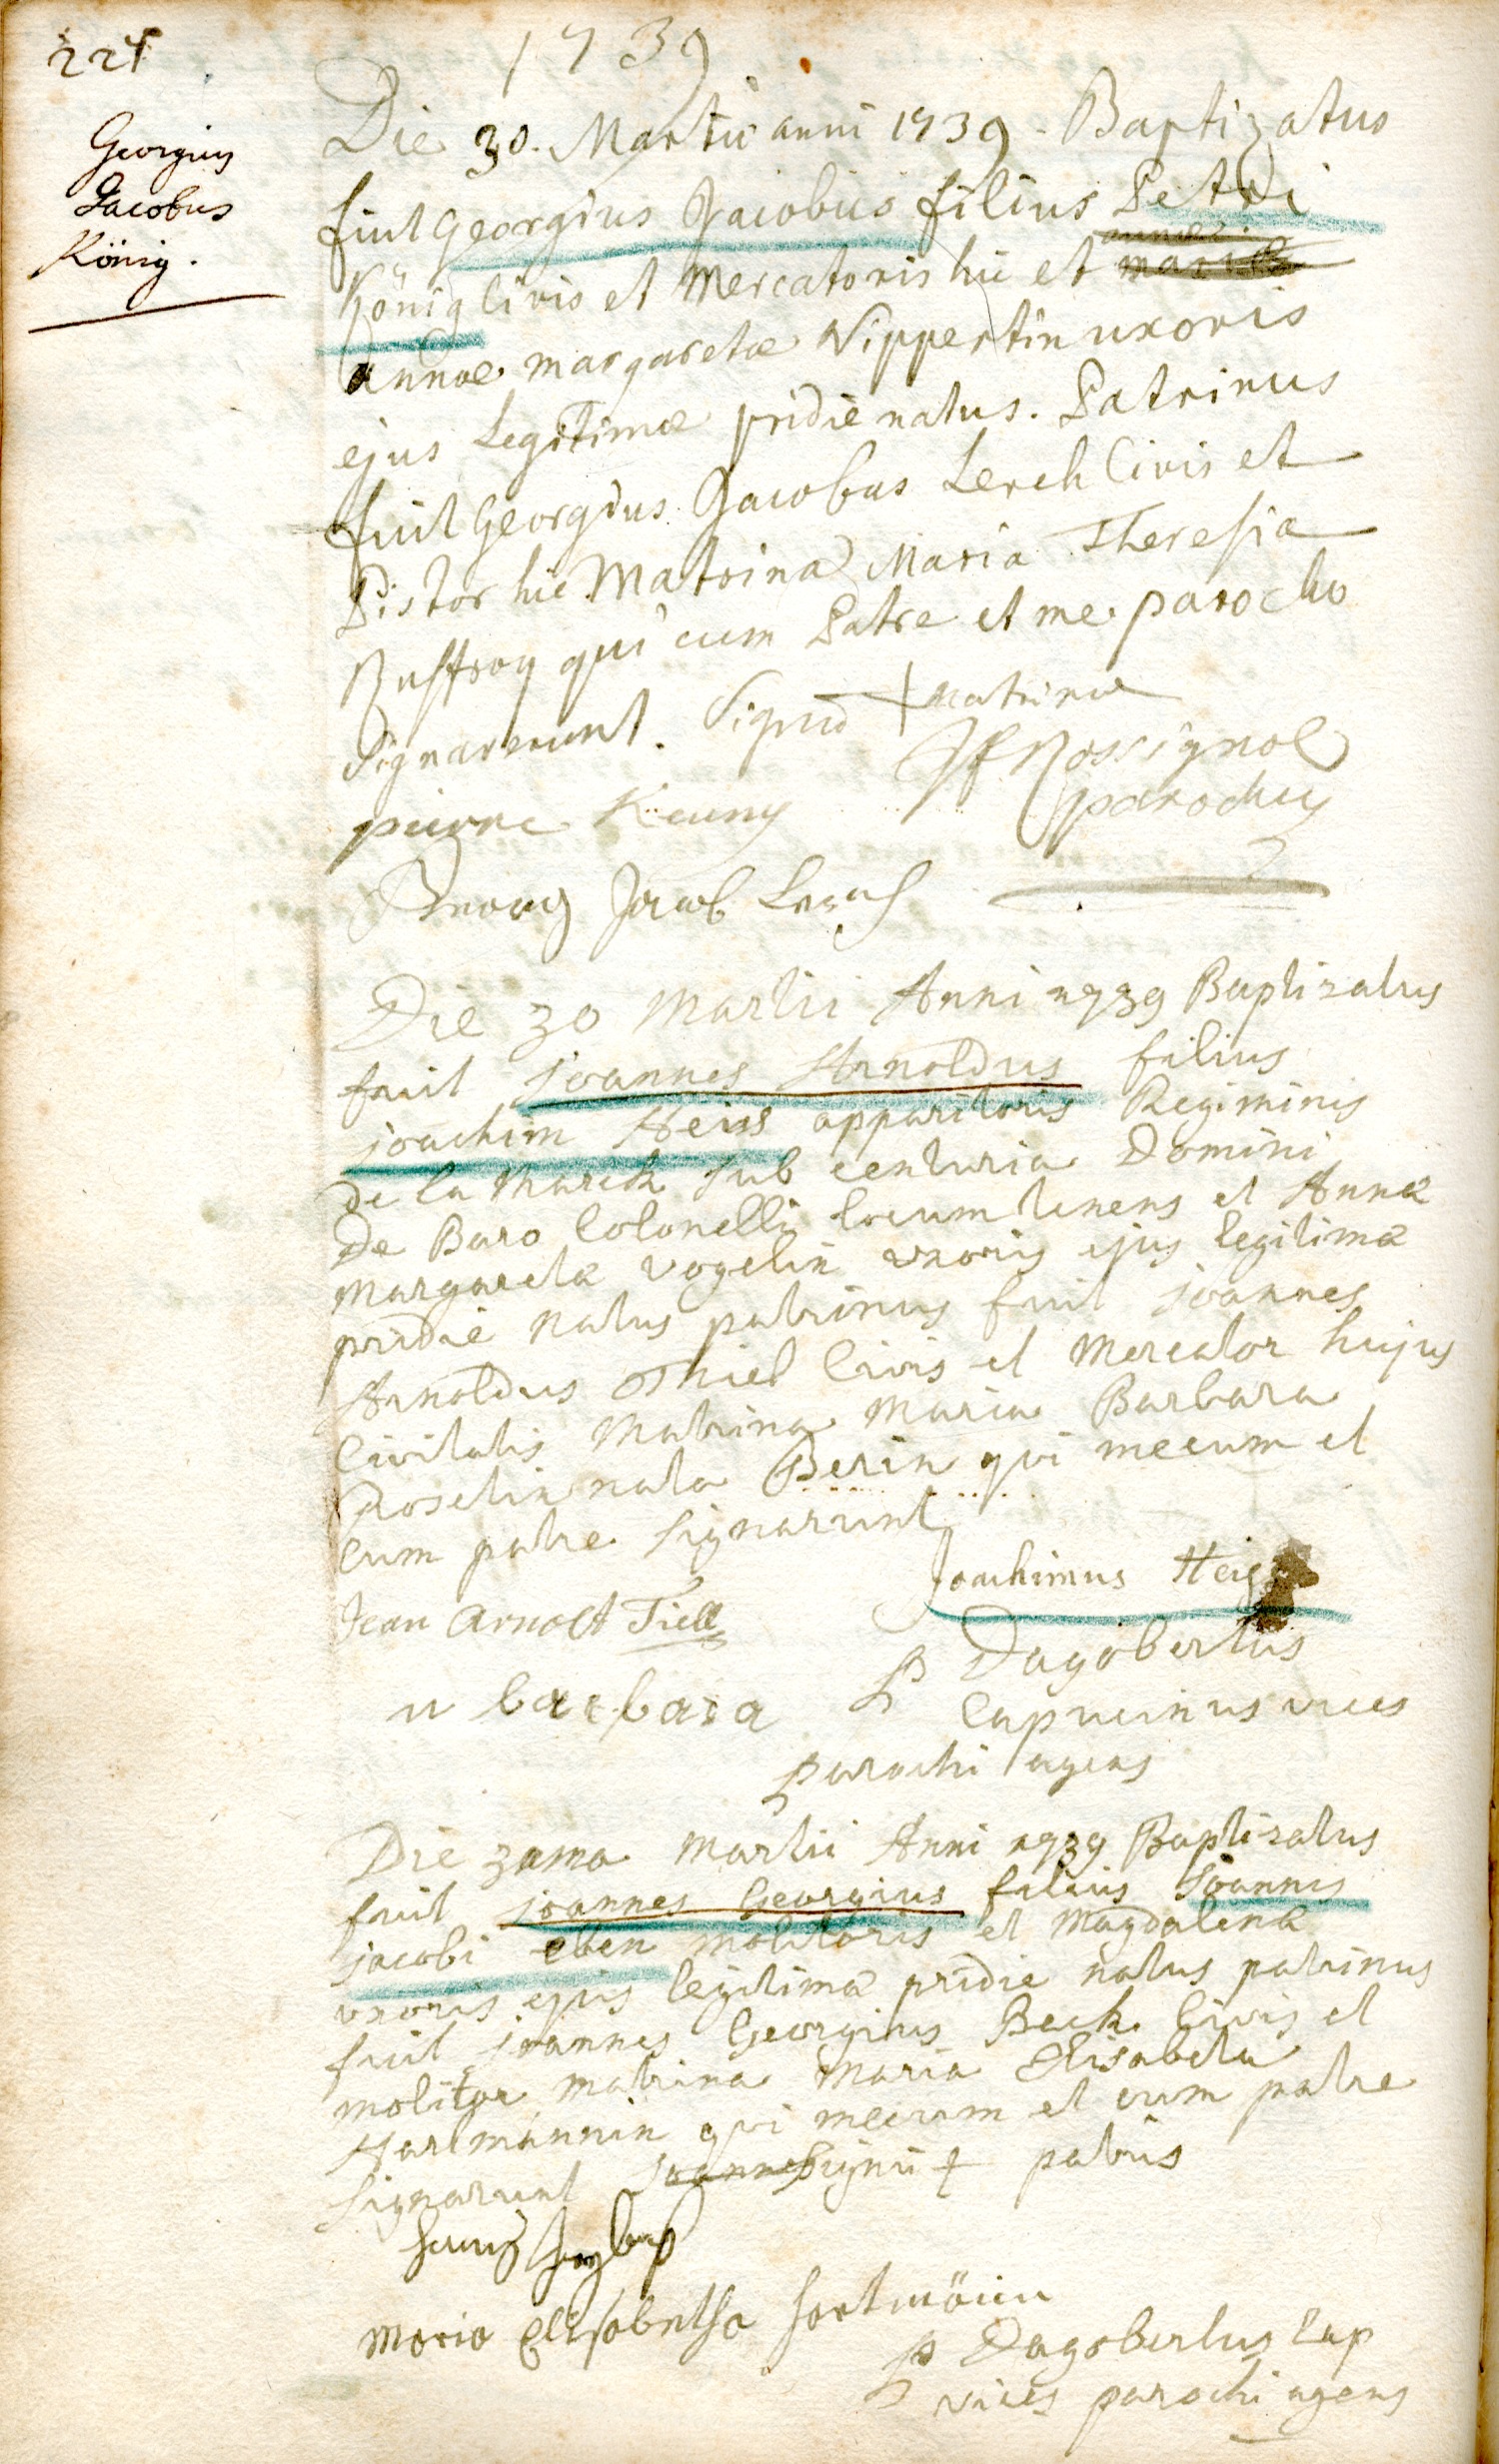 224
1739
Georgius
Jacobus
König.
Die 30. Martii anni 1739 Baptizatus
fuit Georgius Jacobus filius Petri
König civis et Mercatoris hic et
annae margaretae Nippertin uxoris
ejus Legitimae pridie natus. Patrinus
fuit Georgius Jacobus Lerch Civis et
Pistor hic Matrina Maria Theresia
qui cum Patre et me parocho
signaverunt. Signū + Matrinae
Rossignol
pierre Keuny parochus
Georg Jacob Lerch
Die 30 Martii Anni 1739 Baptizatus
fuit joannes Arnoldus filius
joachim Heiss apparitoris Regiminis
de la Marck sub centuria Domini
De Baro Colonelli locum tenens et Annæ
Margaretæ Vogelin uxoris ejus legitimæ
pridie natus patrinus fuit joannes
Arnoldus Thiel Civis et Mercator hujus
Civitatis Matrina Maria Barbara
Roselin nata Berin qui mecum et
cum patre signarunt
Joachimus Heiss
Jean Arnolt Tiell
P Dagobertus
barbara
Capucinus vices
parochi agens
Die 30ma Martii Anni 1739 Baptizatus
fuit joannes Georgius filius Joannis
jacobi eben molitoris et Magdalenæ
uxoris ejus legitimæ pridie natus patrinus
fuit joannes Georgius Beck Civis et
molitor matrina Maria Elisabeta
Hartmannin qui mecum et cum patre
signarunt signū + patris
Maria Elisabetha hartmänin
P Dagobertus Cap
vices parochi agens